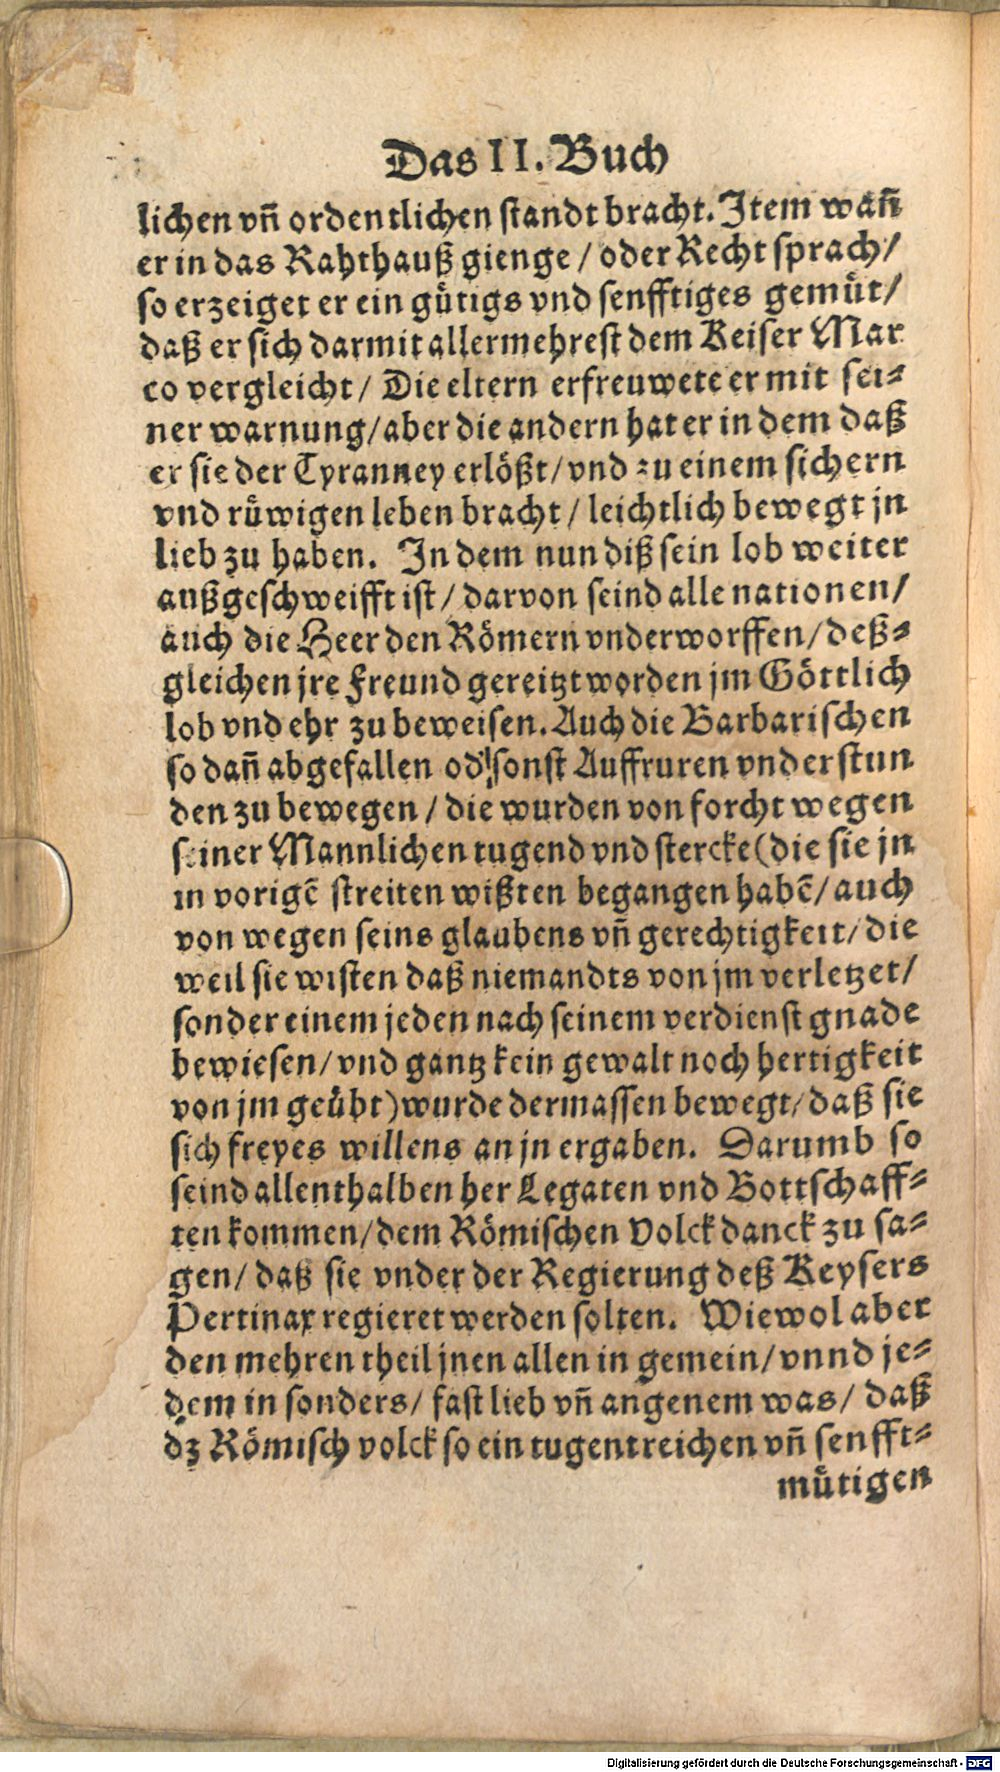 Das II. Buch
lichen vñ ordentlichen standt bracht. Item wañ
er in das Rahthauß gienge / oder Recht sprach/
so erzeiget er ein gütigs vnd senfftiges gemüt/
daß er sich darmit allermehrest dem Keiser Mar
co vergleicht / Die eltern erfreuwete er mit sei-
ner warnung/aber die andern hat er in dem daß
er sie der Tyranney erlößt/vnd zu einem sichern
vnd rüwigen leben bracht / leichtlich bewegt jn
lieb zu haben. In dem nun diß sein lob weiter
außgeschweifft ist / darvon seind alle nationen/
auch die Heer den Römern vnderworffen/deß-
gleichen jre Freund gereitzt worden jm Göttlich
lob vnd ehr zu beweisen. Auch die Barbarischen
so dañ abgefallen od' sonst Auffruren vnderstun
den zu bewegen / die wurden von forcht wegen
seiner Mannlichen tugend vnd stercke (die sie jn
in vorigẽ streiten wißten begangen habẽ/auch
von wegen seins glaubens vñ gerechtigkeit/die
weil sie wisten daß niemandts von jm verletzet/
sonder einem jeden nach seinem verdienst gnade
bewiesen/vnd gantz kein gewalt noch hertigkeit
von jm geübt)wurde dermassen bewegt/daß sie
sich freyes willens an jn ergaben. Darumb so
seind allenthalben her Legaten vnd Bottschaff-
ten kommen/dem Römischen Volck danck zu sa-
gen/ daß sie vnder der Regierung deß Keysers
Pertinax regieret werden solten. Wiewol aber
den mehren theil jnen allen in gemein/vnnd je-
dem in sonders/ fast lieb vñ angenem was/ daß
dz Römisch volck so ein tugentreichen vñ senfft-
mütigen
Digitalisierung gefördert durch die Deutsche Forschungsgemeinschaft - DFG